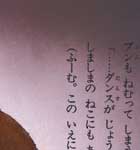 プンも ねむって しま
「……ダンスが じょう
しましまの ねこにも あ
(ふーむ。この いえに